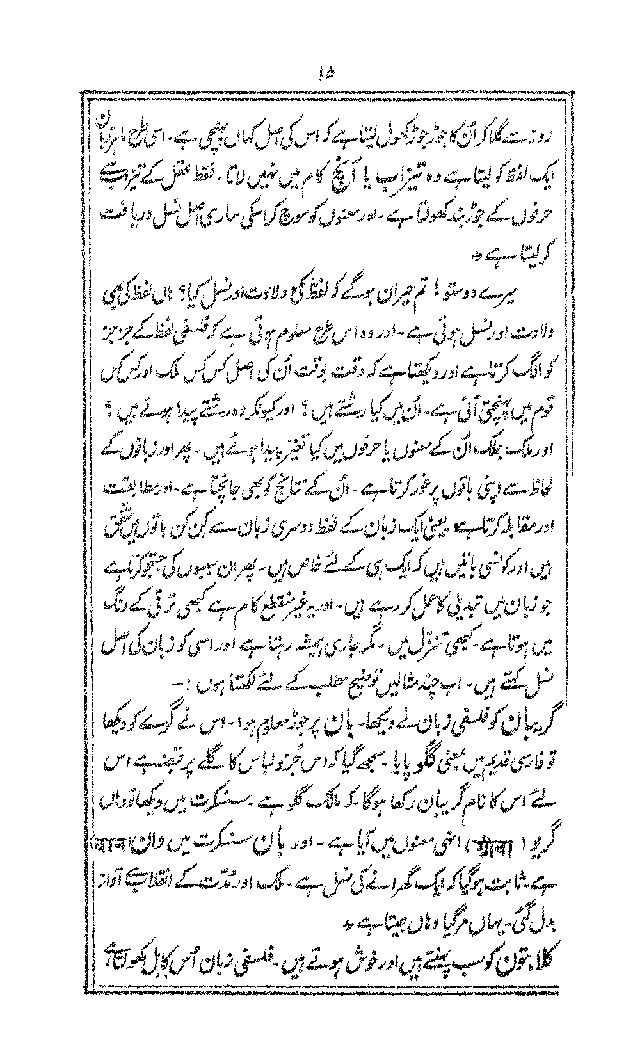 ۱۵
روز سے گلا کر اُن کا جوڑ جوڑ کھول لیتا ہے کہ اس کی اصل کہاں پہنچی ہے۔ اسی طرح
ایک لفظ کو لیتا ہے وہ تیزاب یا آنچ کام میں نہیں لاتا۔ فقط عقل کے تیزاب سے
حرفوں کے جوڑ بند کھولتا ہے۔ اور معنوں کو سوچ کر اسکی ساری اصل نسل دریافت
کر لیتا ہے *
میرے دوستو! تم حیران ہوگے کہ لفظ کی ولادت اور نسل کیا؟ ہاں لفظ کی بھی
ولادت اور نسل ہوتی ہے۔ اور وہ اس طرح معلوم ہوتی ہے کہ فلسفی لفظ کے جز جز
کو الگ کرتا ہے اور دیکھتا ہے کہ وقت بوقت اُن کی اصل کس کس ملک اور کس کس
قوم میں پہنچتی آئی ہے۔ اُن میں کیا رشتے ہیں؟ اور کیونکر وہ رشتے پیدا ہوئے ہیں؟
اور ملک بملک اُن کے معنوں یا حرفوں میں کیا تغیر پیدا ہوئے ہیں۔ پھر اور زبانوں کے
لحاظ سے اپنی باتوں پر غور کرتا ہے۔ اُن کے نتائج کو بھی جانچتا ہے۔ اور مطابقت
اور مقابلہ کرتا ہے یعنی ایک زبان کے لفظ دوسری زبان سے کن کن باتوں میں متفق
ہیں اور کونسی باتیں ہیں کہ ایک ہی کے لئے خاص ہیں۔ پھر ان سببوں کی جستجو کرتا ہے
جو زبان میں تبدیلی کا عمل کر رہے ہیں۔ اور یہ غیر منقطع کام ہے کبھی ترقی کے رنگ
میں ہوتا ہے۔ کبھی تنزل میں۔ مگر جاری ہمیشہ رہتا ہے اور اسی کو زبان کی اصل
نسل کہتے ہیں۔ اب چند مثالیں توضیح مطلب کے لئے لکھتا ہوں :۔
گریبان کو فلسفی زبان نے دیکھا۔ بان پر جوڑ معلوم ہوا۔ اس نے گرے کو دیکھا
تو فارسی قدیم میں بمعنی گلو پایا۔ سمجھ گیا کہ اس جُزو لباس کا گلے پر قبضہ ہے اس
لئے اس کا نام گریبان رکھا ہوگا کہ مالک گلو ہے۔ سنسکرت میں دیکھا تو وہاں
گریو (ग्रीवा) انہی معنوں میں آیا ہے۔ اور بان سنسکرت میں وان (वान)
ہے۔ ثابت ہوگیا کہ ایک گھرانے کی نسل ہے۔ ملک اور مدت کے انقلاب سے آواز
بدل گئی۔ یہاں مرگیا وہاں جیتا ہے *
کلابتون کو سب پہنتے ہیں اور خوش ہوتے ہیں۔ فلسفی زبان اُس کا بل کھولتا ہے